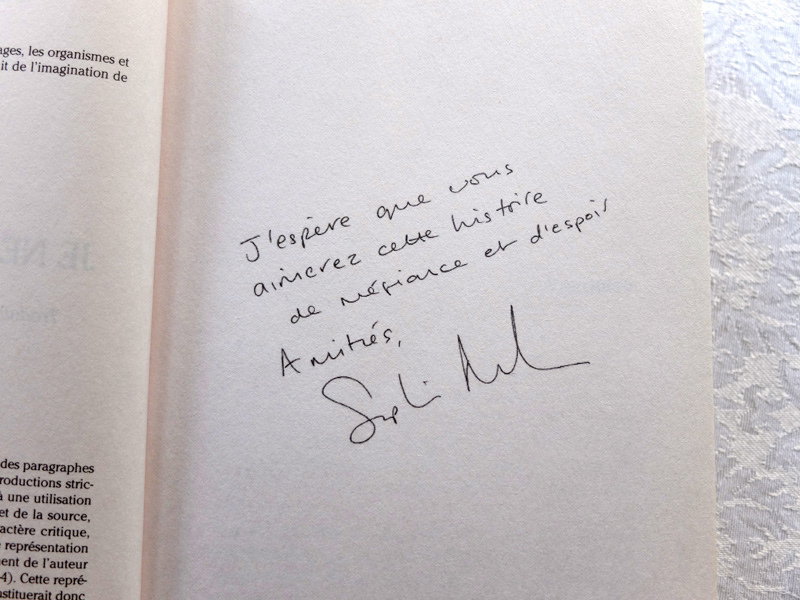 ages, les organismes et
it de l'imagination de
J'espère que vous
aimerez cette histoire
de méfiance et d'espoir
Amitiés,
des paragraphes
roductions stric-
à une utilisation
et de la source,
actère critique,
représentation
ent de l'auteur
4). Cette repré-
stituerait donc